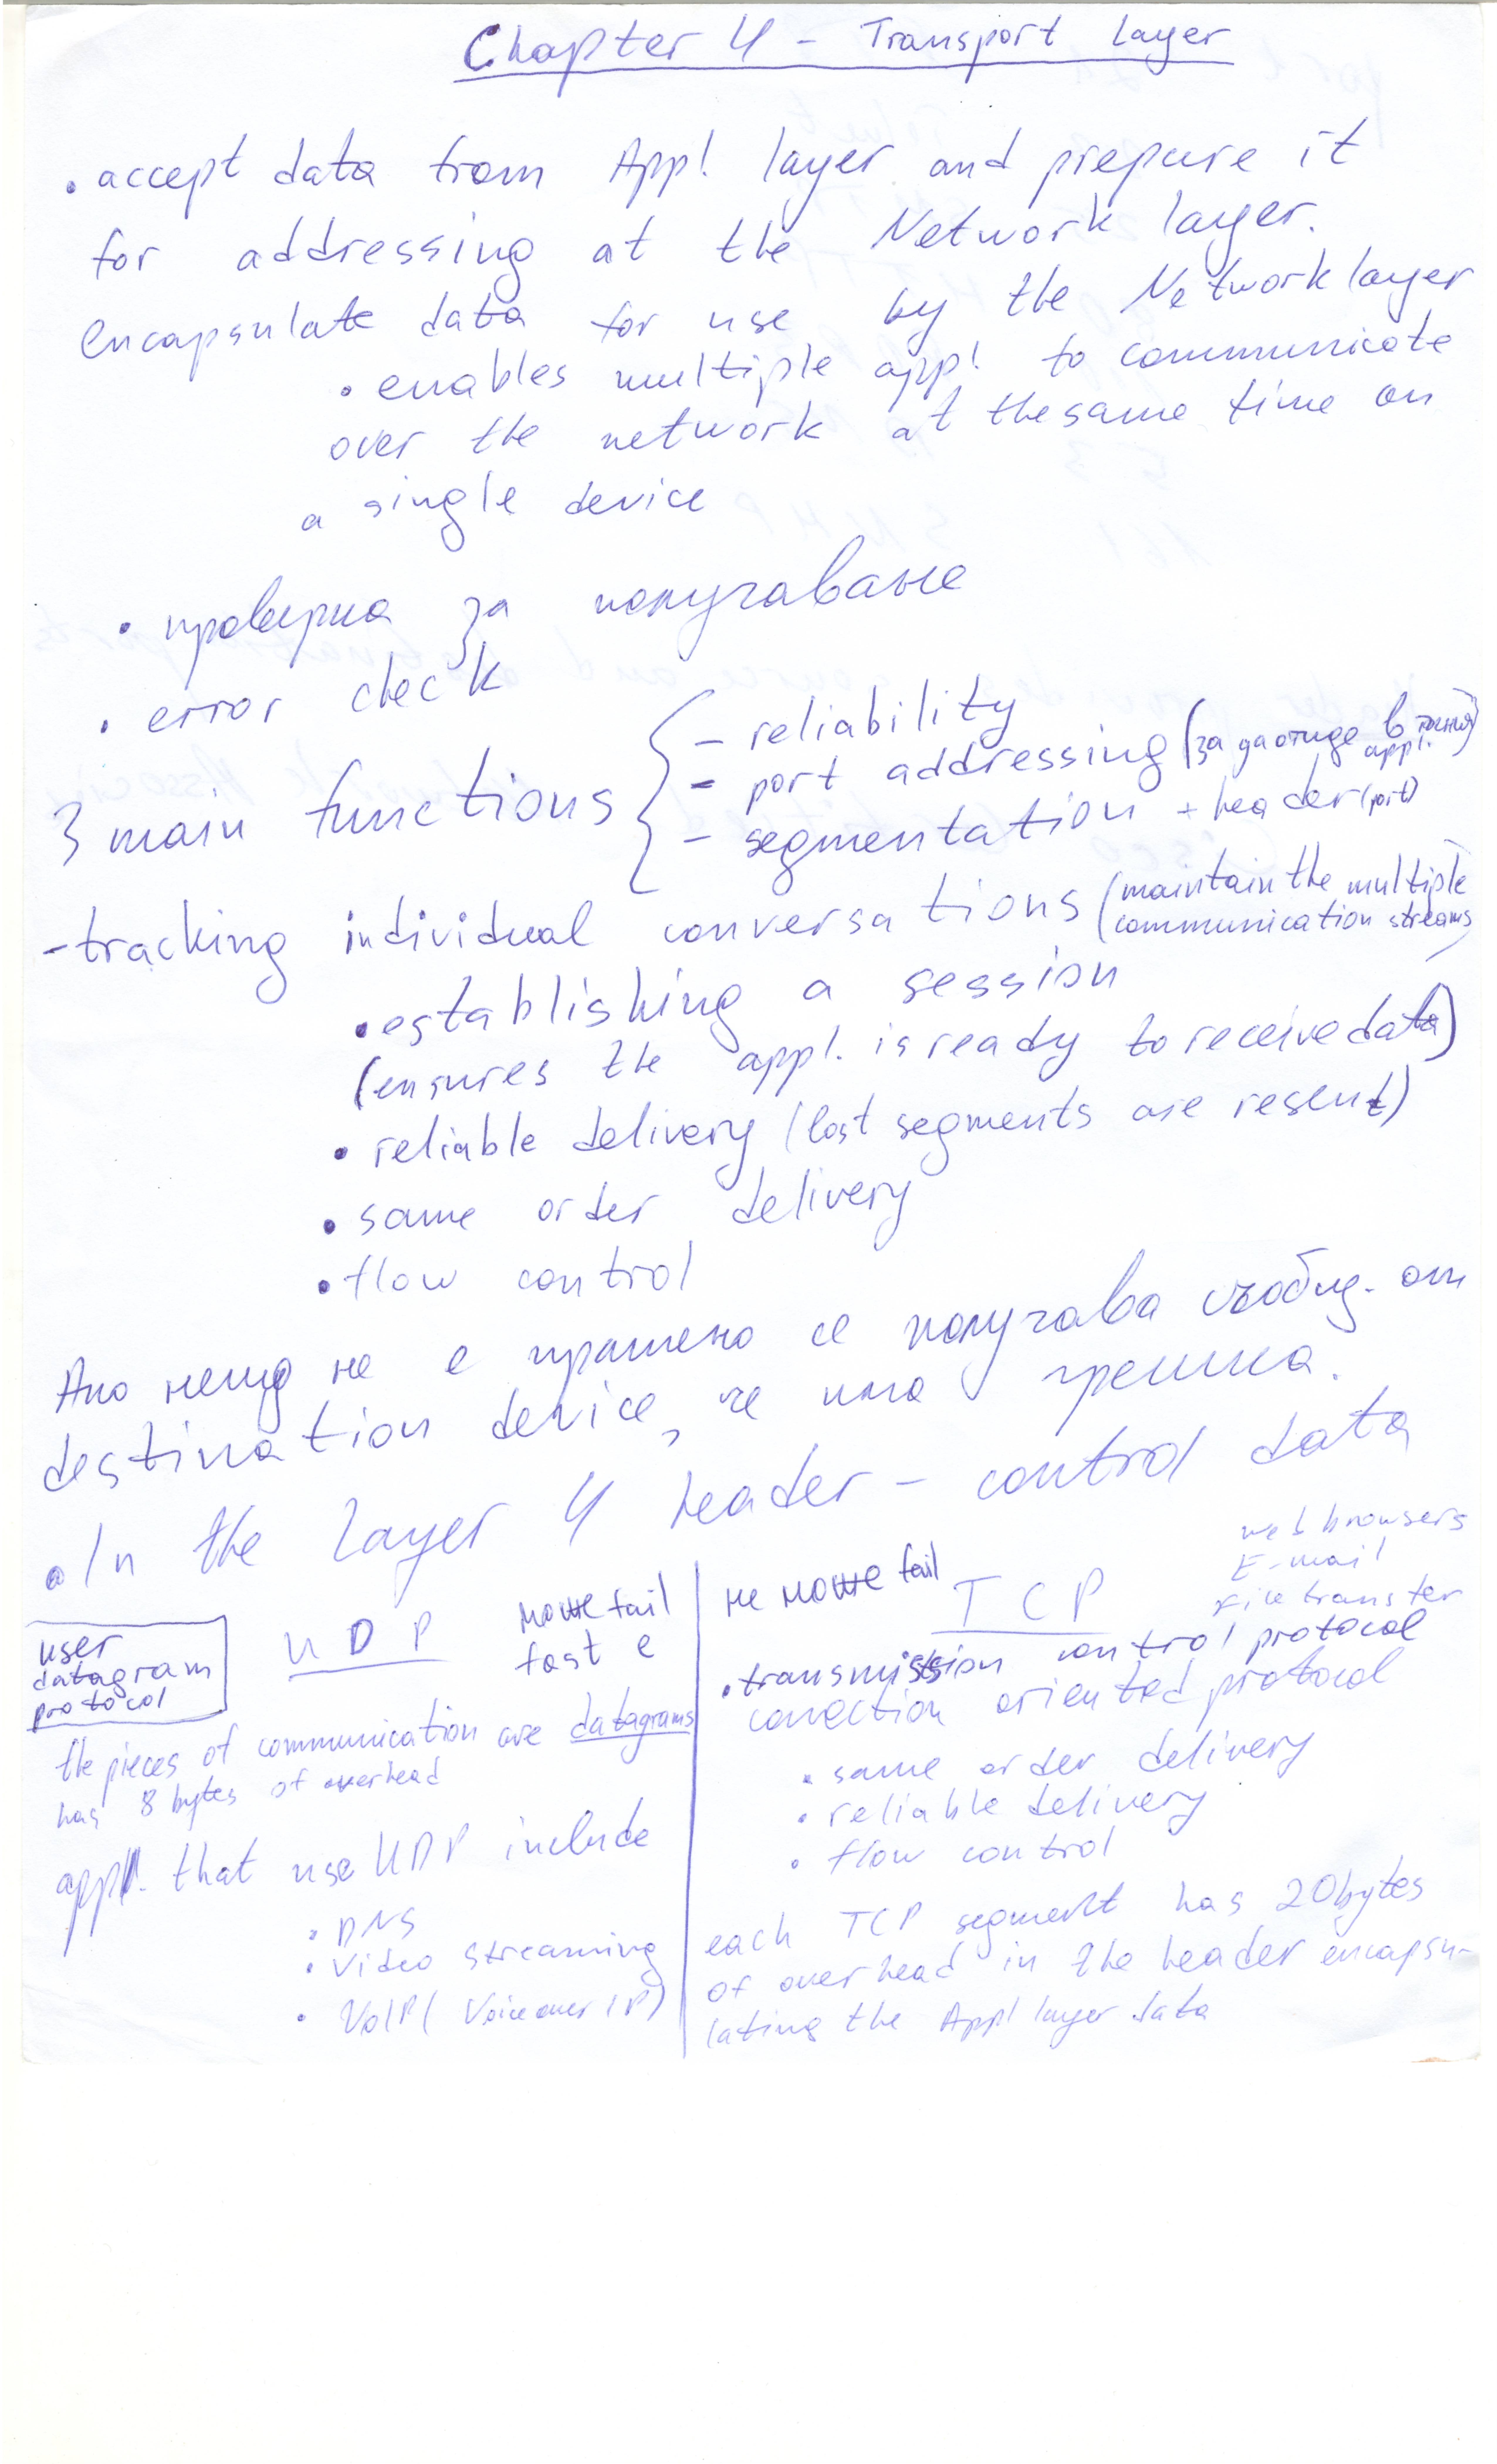 Chapter 4 - Transport Layer
• accept data from Appl. layer and prepare it
for addressing at the Network layer.
encapsulate data for use by the Network layer
• enables multiple appl. to communicate
over the network at the same time on
a single device
• проверка за получаване
• error check
3 main functions
- reliability
- port addressing (за да отиде в
appl.
- segmentation + header (port)
- tracking individual conversations (maintain the multiple
communication streams
• establishing a session
(ensures the appl. is ready to receive data)
• reliable delivery (lost segments are resent)
• same order delivery
• flow control
Ако нещо не е пратено се получава съобщ. от
destination device, че има грешка.
• In the Layer 4 header - control data
user
datagram
protocol
UDP
може fail
fast е
the pieces of communication are datagrams
has 8 bytes of overhead
appl. that use UDP include
• DNS
• Video streaming
• VoIP (Voice over IP)
не може fail
TCP
web browsers
E-mail
File transfer
• transmission control protocol
conection oriented protocol
• same order delivery
• reliable delivery
• flow control
each TCP segment has 20 bytes
of overhead in the header encapsu-
lating the Appl layer data